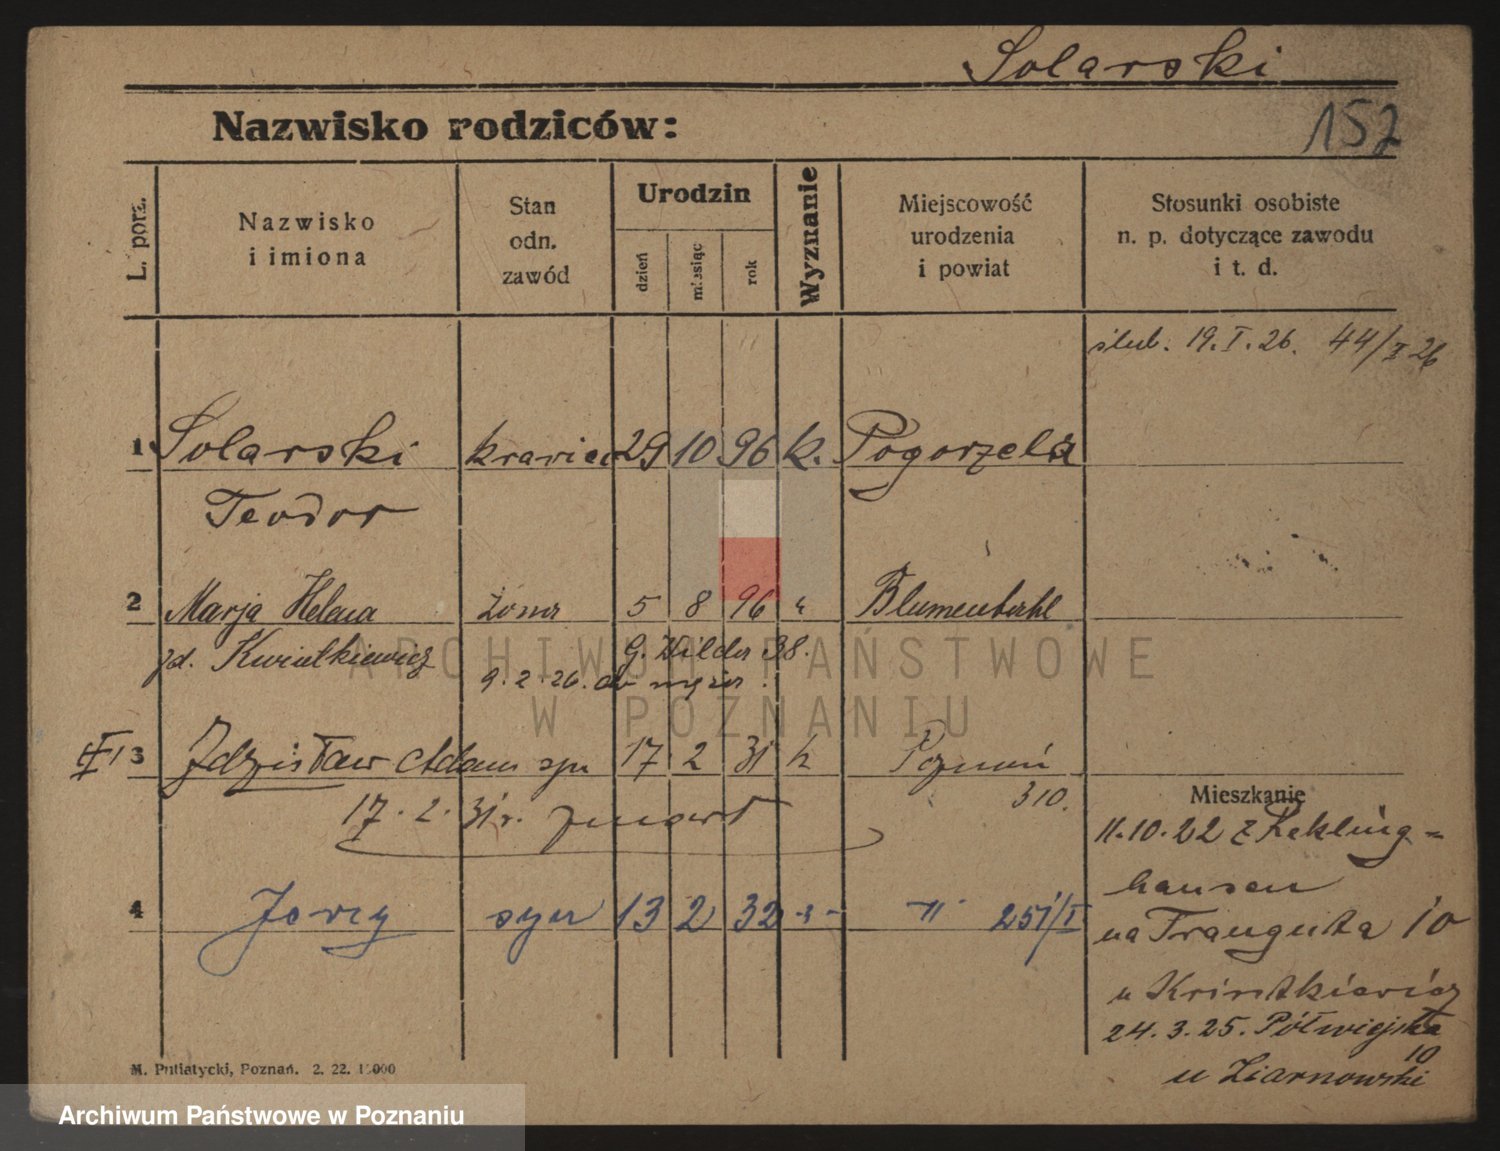 Solarski
Nazwisko rodziców:
152
L. porz.
Nazwisko
i imiona
Stan
odn.
zawód
Urodzin
dzień
miesiąc
rok
Wyznanie
Miejscowość
urodzenia
i powiat
Stosunki osobiste
n. p. dotyczące zawodu
i t. d.
ślub. 19.I.26. 44/I 26
1 Solarski krawiec 29 10 96 k. Pogorzela
Teodor
2 Marja Helena żona 5 8 96 " Blumenthal
zd. Kwiatkiewicz G. Wilda 38.
9.2.26. do męża.
3 Zdzisław Adam syn 17 2 31 k Poznań
310.
17.2.31r. zmarł
4 Jerzy syn 13 2 32 -"- -"- 251/I
Mieszkanie
11.10.22 z Rekling-
hausen
na Traugutta 10
u Kwiatkiewicz
24.3.25. Półwiejska
10
u Ziarnowski
M. Putiatycki, Poznań. 2. 22.
ARCHIWUM PAŃSTWOWE
W POZNANIU
Archiwum Państwowe w Poznaniu